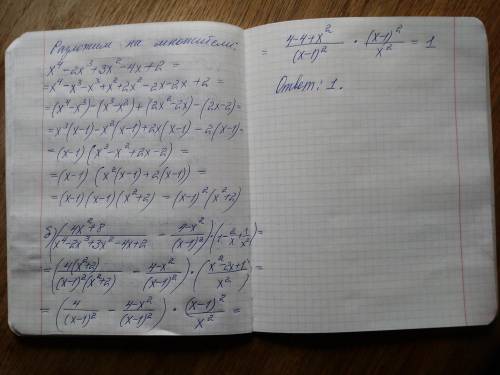 Разложим на множители:
x⁴-2x³+3x²-4x+2 =
= x⁴-x³-x³+x²+2x²-2x-2x+2 =
= (x⁴-x³)-(x³-x²)+(2x²-2x)-(2x-2) =
= x³(x-1)-x²(x-1)+2x(x-1)-2(x-1) =
= (x-1)(x³-x²+2x-2) =
= (x-1)(x²(x-1)+2(x-1)) =
= (x-1)(x-1)(x²+2) = (x-1)²(x²+2)
б) ((4x²+8)/(x⁴-2x³+3x²-4x+2) - (4-x²)/(x-1)²)·(1-2/x+1/x²) =
= (4(x²+2)/((x-1)²(x²+2)) - (4-x²)/(x-1)²)·((x²-2x+1)/x²) =
= (4/(x-1)² - (4-x²)/(x-1)²)·(x-1)²/x² =
= (4-4+x²)/(x-1)² · (x-1)²/x² = 1
Ответ: 1.